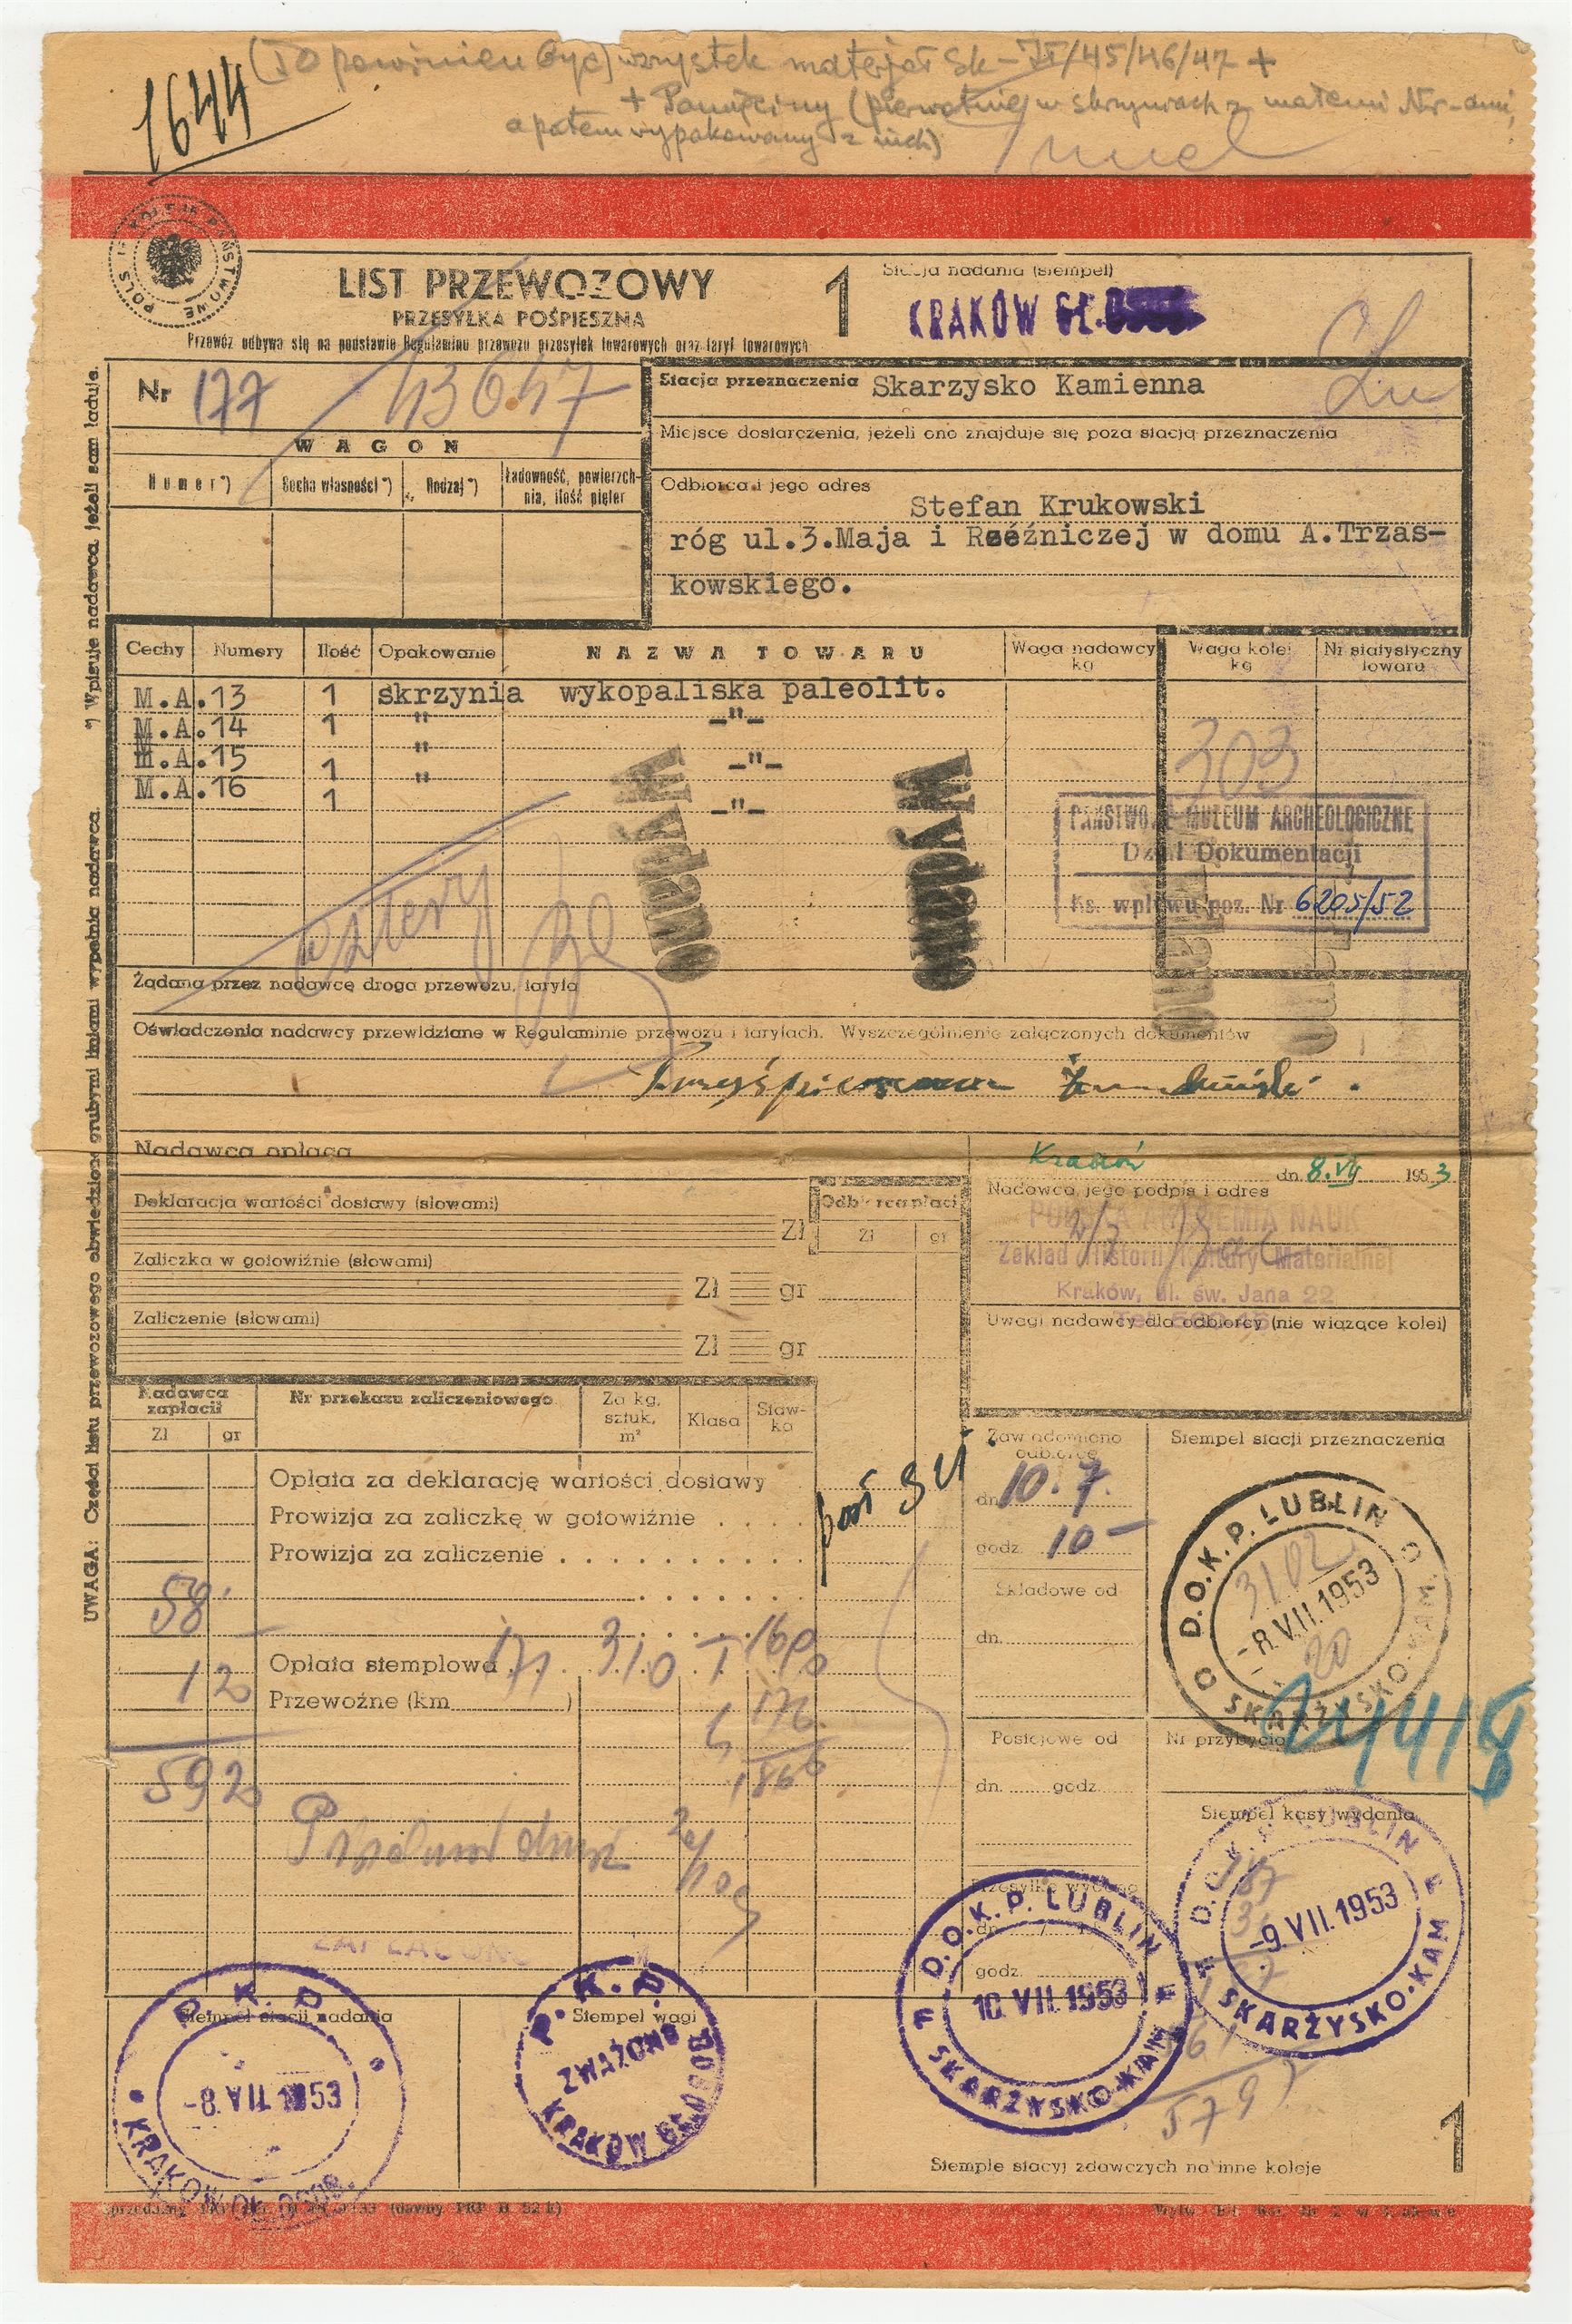 (To powinien być) wszystek materjał Sk-II/45/46/47 +
+ (pierwotnie w skrzyniach z małemi Nr-ami,
a potem wypakowany z nich)
1644
POLSKIE KOLEJE PAŃSTWOWE
LIST PRZEWOZOWY
PRZESYŁKA POŚPIESZNA
Przewóz odbywa się na podstawie Regulaminu przewozu przesyłek towarowych oraz taryf towarowych
1
Stacja nadania (stempel)
KRAKÓW GŁ.
Nr 177 43647
WAGON
Numer*) Cecha własności*) Rodzaj*) Ładowność, powierzch-
nia, ilość pięter
Stacja przeznaczenia Skarzysko Kamienna
Miejsce dostarczenia, jeżeli ono znajduje się poza stacją przeznaczenia
Odbiorca i jego adres
Stefan Krukowski
róg ul.3.Maja i Rzeźniczej w domu A.Trzas-
kowskiego.
*) Wpisuje nadawca, jeżeli sam ładuje.
UWAGA: Części listu przewozowego obwiedzione grubymi liniami wypełnia nadawca.
Cechy Numery Ilość Opakowanie NAZWA TOWARU Waga nadawcy kg Waga kolei kg Nr statystyczny towaru
M.A.13 1 skrzynia wykopaliska paleolit.
M.A.14 1 " -"-
m.A.15 1 " -"-
M.A.16 1 " -"-
303
Wydano
Wydano
PAŃSTWOWE MUZEUM ARCHEOLOGICZNE
Dział Dokumentacji
Ks. wpływu poz. Nr 6205/52
cztery
Żądana przez nadawcę droga przewozu, taryfa
Oświadczenia nadawcy przewidziane w Regulaminie przewozu i taryfach. Wyszczególnienie załączonych dokumentów
Nadawca opłaca
Kraków dn. 8.VII 1953
Deklaracja wartości dostawy (słowami)
Zł
Odbiorca płaci
Zł gr
Nadawca, jego podpis i adres
POLSKA AKADEMIA NAUK
Zakład Historii Kultury Materialnej
Kraków, ul. św. Jana 22
Zaliczka w gotowiźnie (słowami)
Zł gr
Zaliczenie (słowami)
Zł gr
Uwagi nadawcy dla odbiorcy (nie wiążące kolei)
Nadawca zapłacił
Zł gr
Nr przekazu zaliczeniowego
Za kg, sztuk, m²
Klasa
Staw-
ka
Opłata za deklarację wartości dostawy
Prowizja za zaliczkę w gotowiźnie
Prowizja za zaliczenie
58
Opłata stemplowa 171 310 I 160
12 Przewoźne (km )
176
5920
Zawiadomiono odbiorcę
dn. 10.7.
godz. 10-
Składowe od
dn.
Postojowe od
dn. godz.
Przesyłkę wydano
dn.
godz.
Stempel stacji przeznaczenia
D.O.K.P. LUBLIN
3102
-8.VII.1953
20
SKARŻYSKO-KAM.
Nr przybycia
Stempel kasy wydania
D.O.K.P. LUBLIN
-9.VII.1953
SKARŻYSKO-KAM
D.O.K.P. LUBLIN
10.VII.1953
SKARŻYSKO-KAM
579
ZAPŁACONO
Stempel stacji nadania
P.K.P.
-8.VII.1953
KRAKÓW GŁ. OSOB.
Stempel wagi
P.K.P.
ZWAŻONO
KRAKÓW GŁ. OSOB
Stemple stacyj zdawczych na inne koleje
1